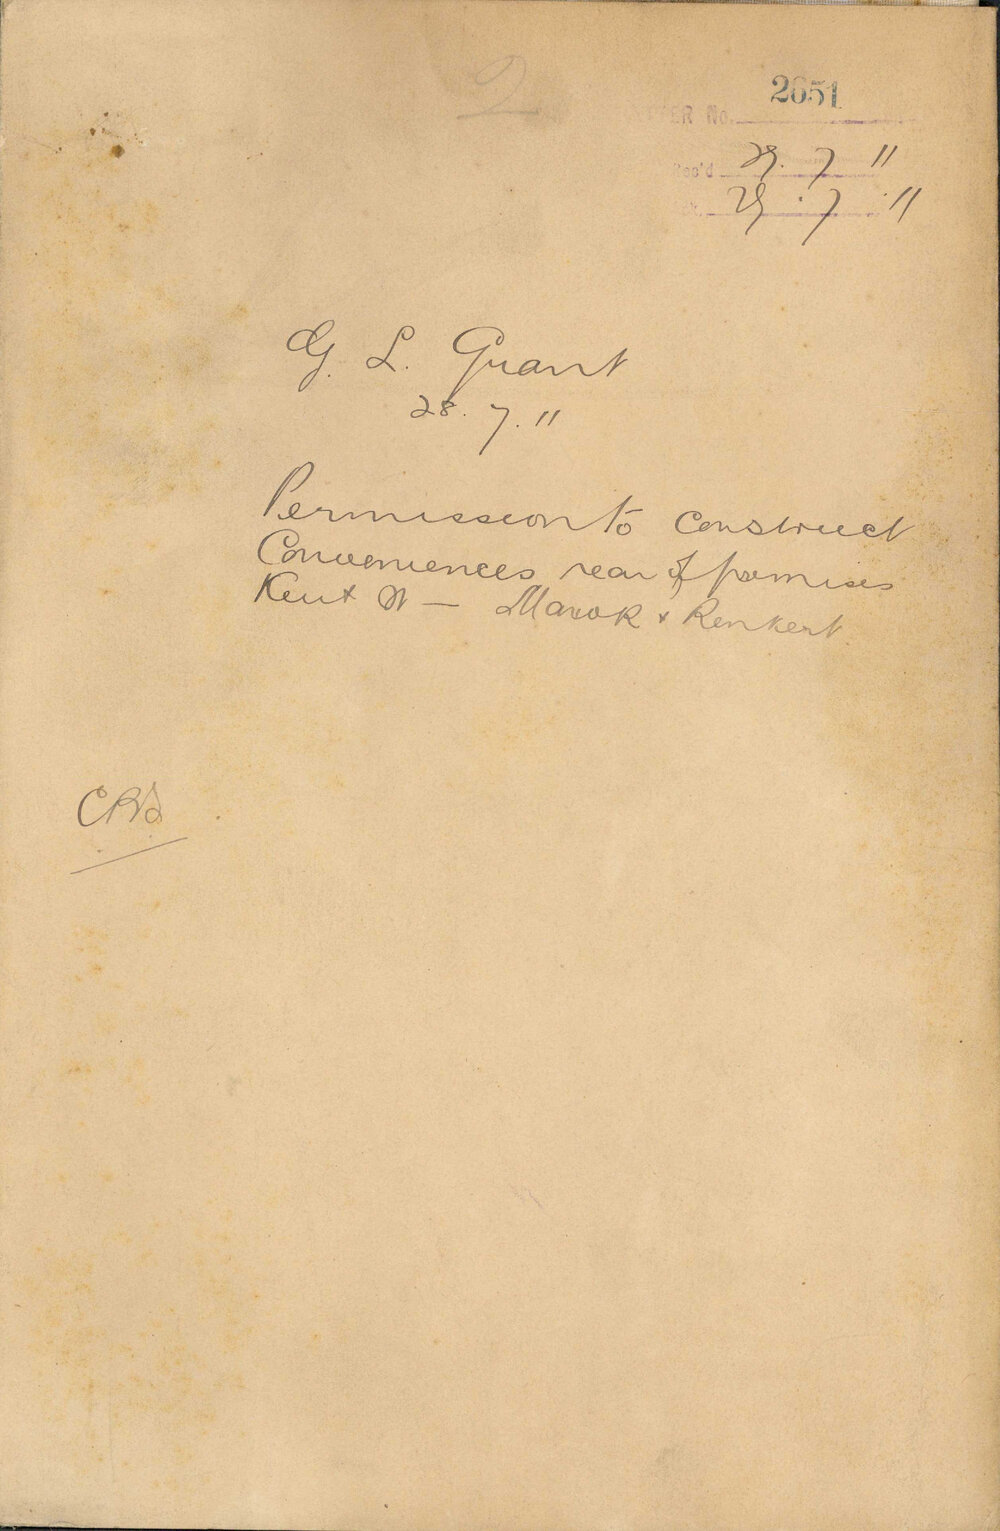 2
2651
LETTER No.
Rec'd 29. 7 11
29. 7. 11
G. L. Grant
28. 7. 11
Permission to construct
Conveniences rear of premises
Kent St — Marok & Renkert